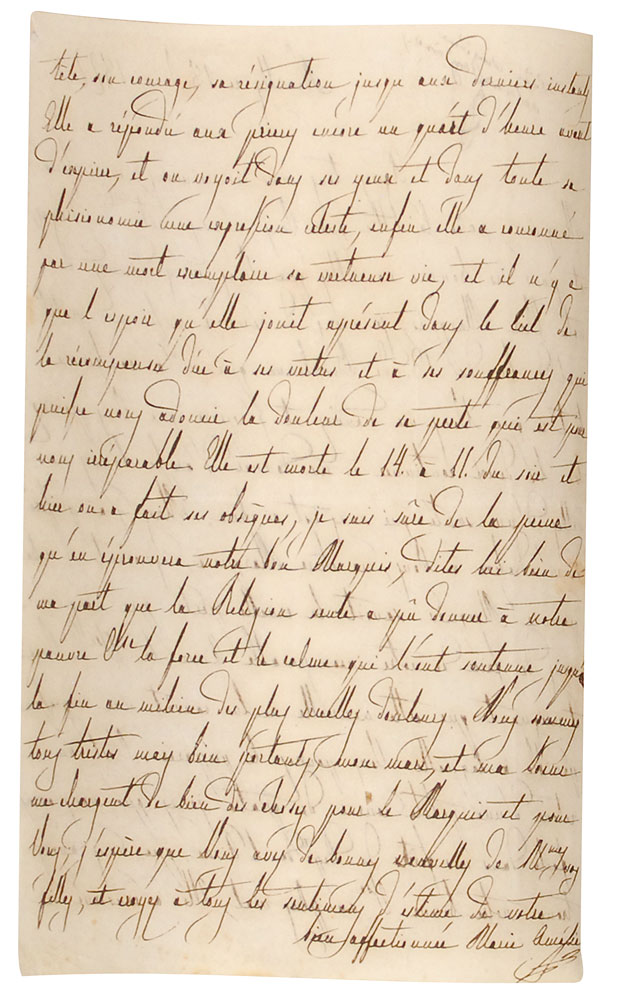 tête, son courage, sa résignation jusqu'aux derniers instants
Elle a répondu aux prières encore un quart d'heure avant
d'expirer, et on voyoit dans ses yeux et dans toute sa
phisionomie une expression céleste, enfin elle a couronné
par une mort exemplaire sa vertueuse vie, et il n'y a
que l'espoir qu'elle jouit aprésent dans le Ciel de
la récompense düe à ses vertus et à ses souffrances qui
puisse nous adoucir la douleur de sa perte qui est pour
nous irréparable. Elle est morte le 14. à 11. du soir et
hier on a fait ses obsèques, je suis sûre de la peine
qu'en éprouvera notre bon Marquis, dites lui bien de
ma part que la Religion seule a pû donner à notre
pauvre la force et le calme qui l'ont soutenue jusqu'à
la fin au milieu des plus cruelles douleurs. Nous sommes
tous tristes mais bien portants, mon mari, et ma Soeur
me chargent de bien des choses pour le Marquis et pour
Vous, j'espère que Vous avez de bonnes nouvelles de vos
filles, et croyez à tous les sentimens d'estime de votre
bien affectionnée Marie Amélie